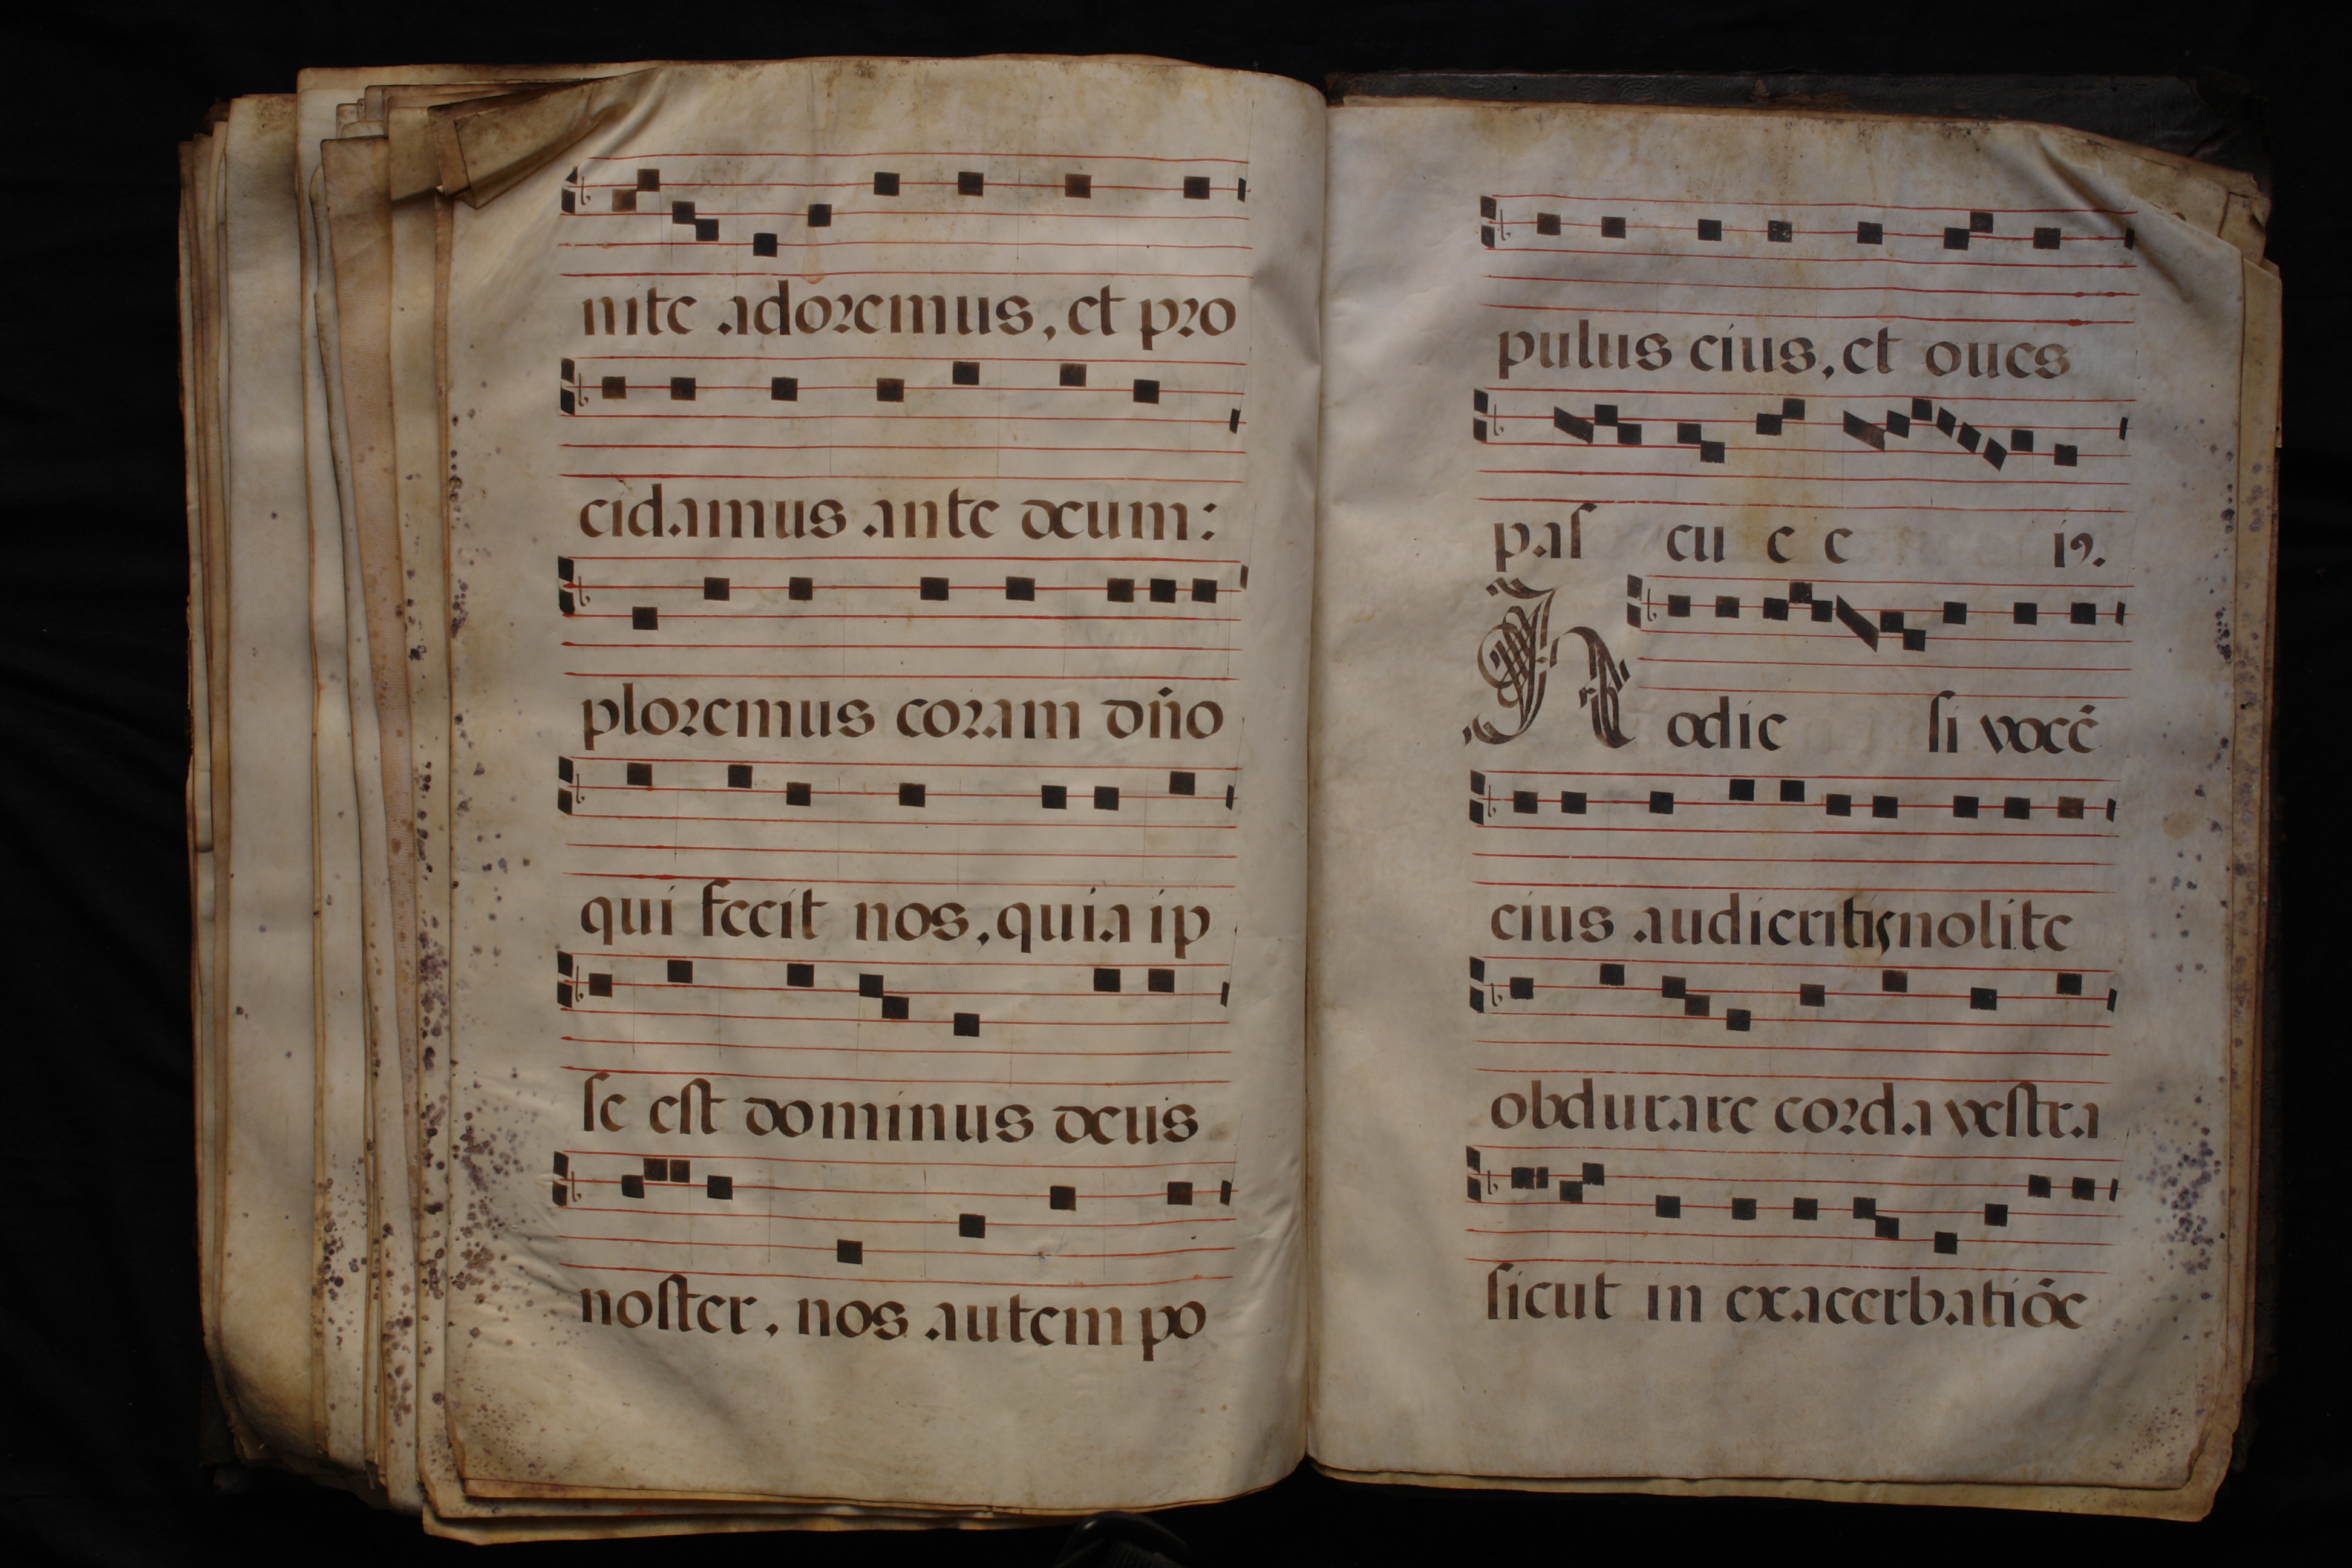 nite adoremus, et pro
cidamus ante deum:
ploremus coram dño
qui fecit nos, quia ip
se est dominus deus
noster, nos autem po
pulus eius, et oues
pas cu e e i9.
Hodie si vocē
eius audieritis nolite
obdurare corda vestra
sicut in exacerbatiōe